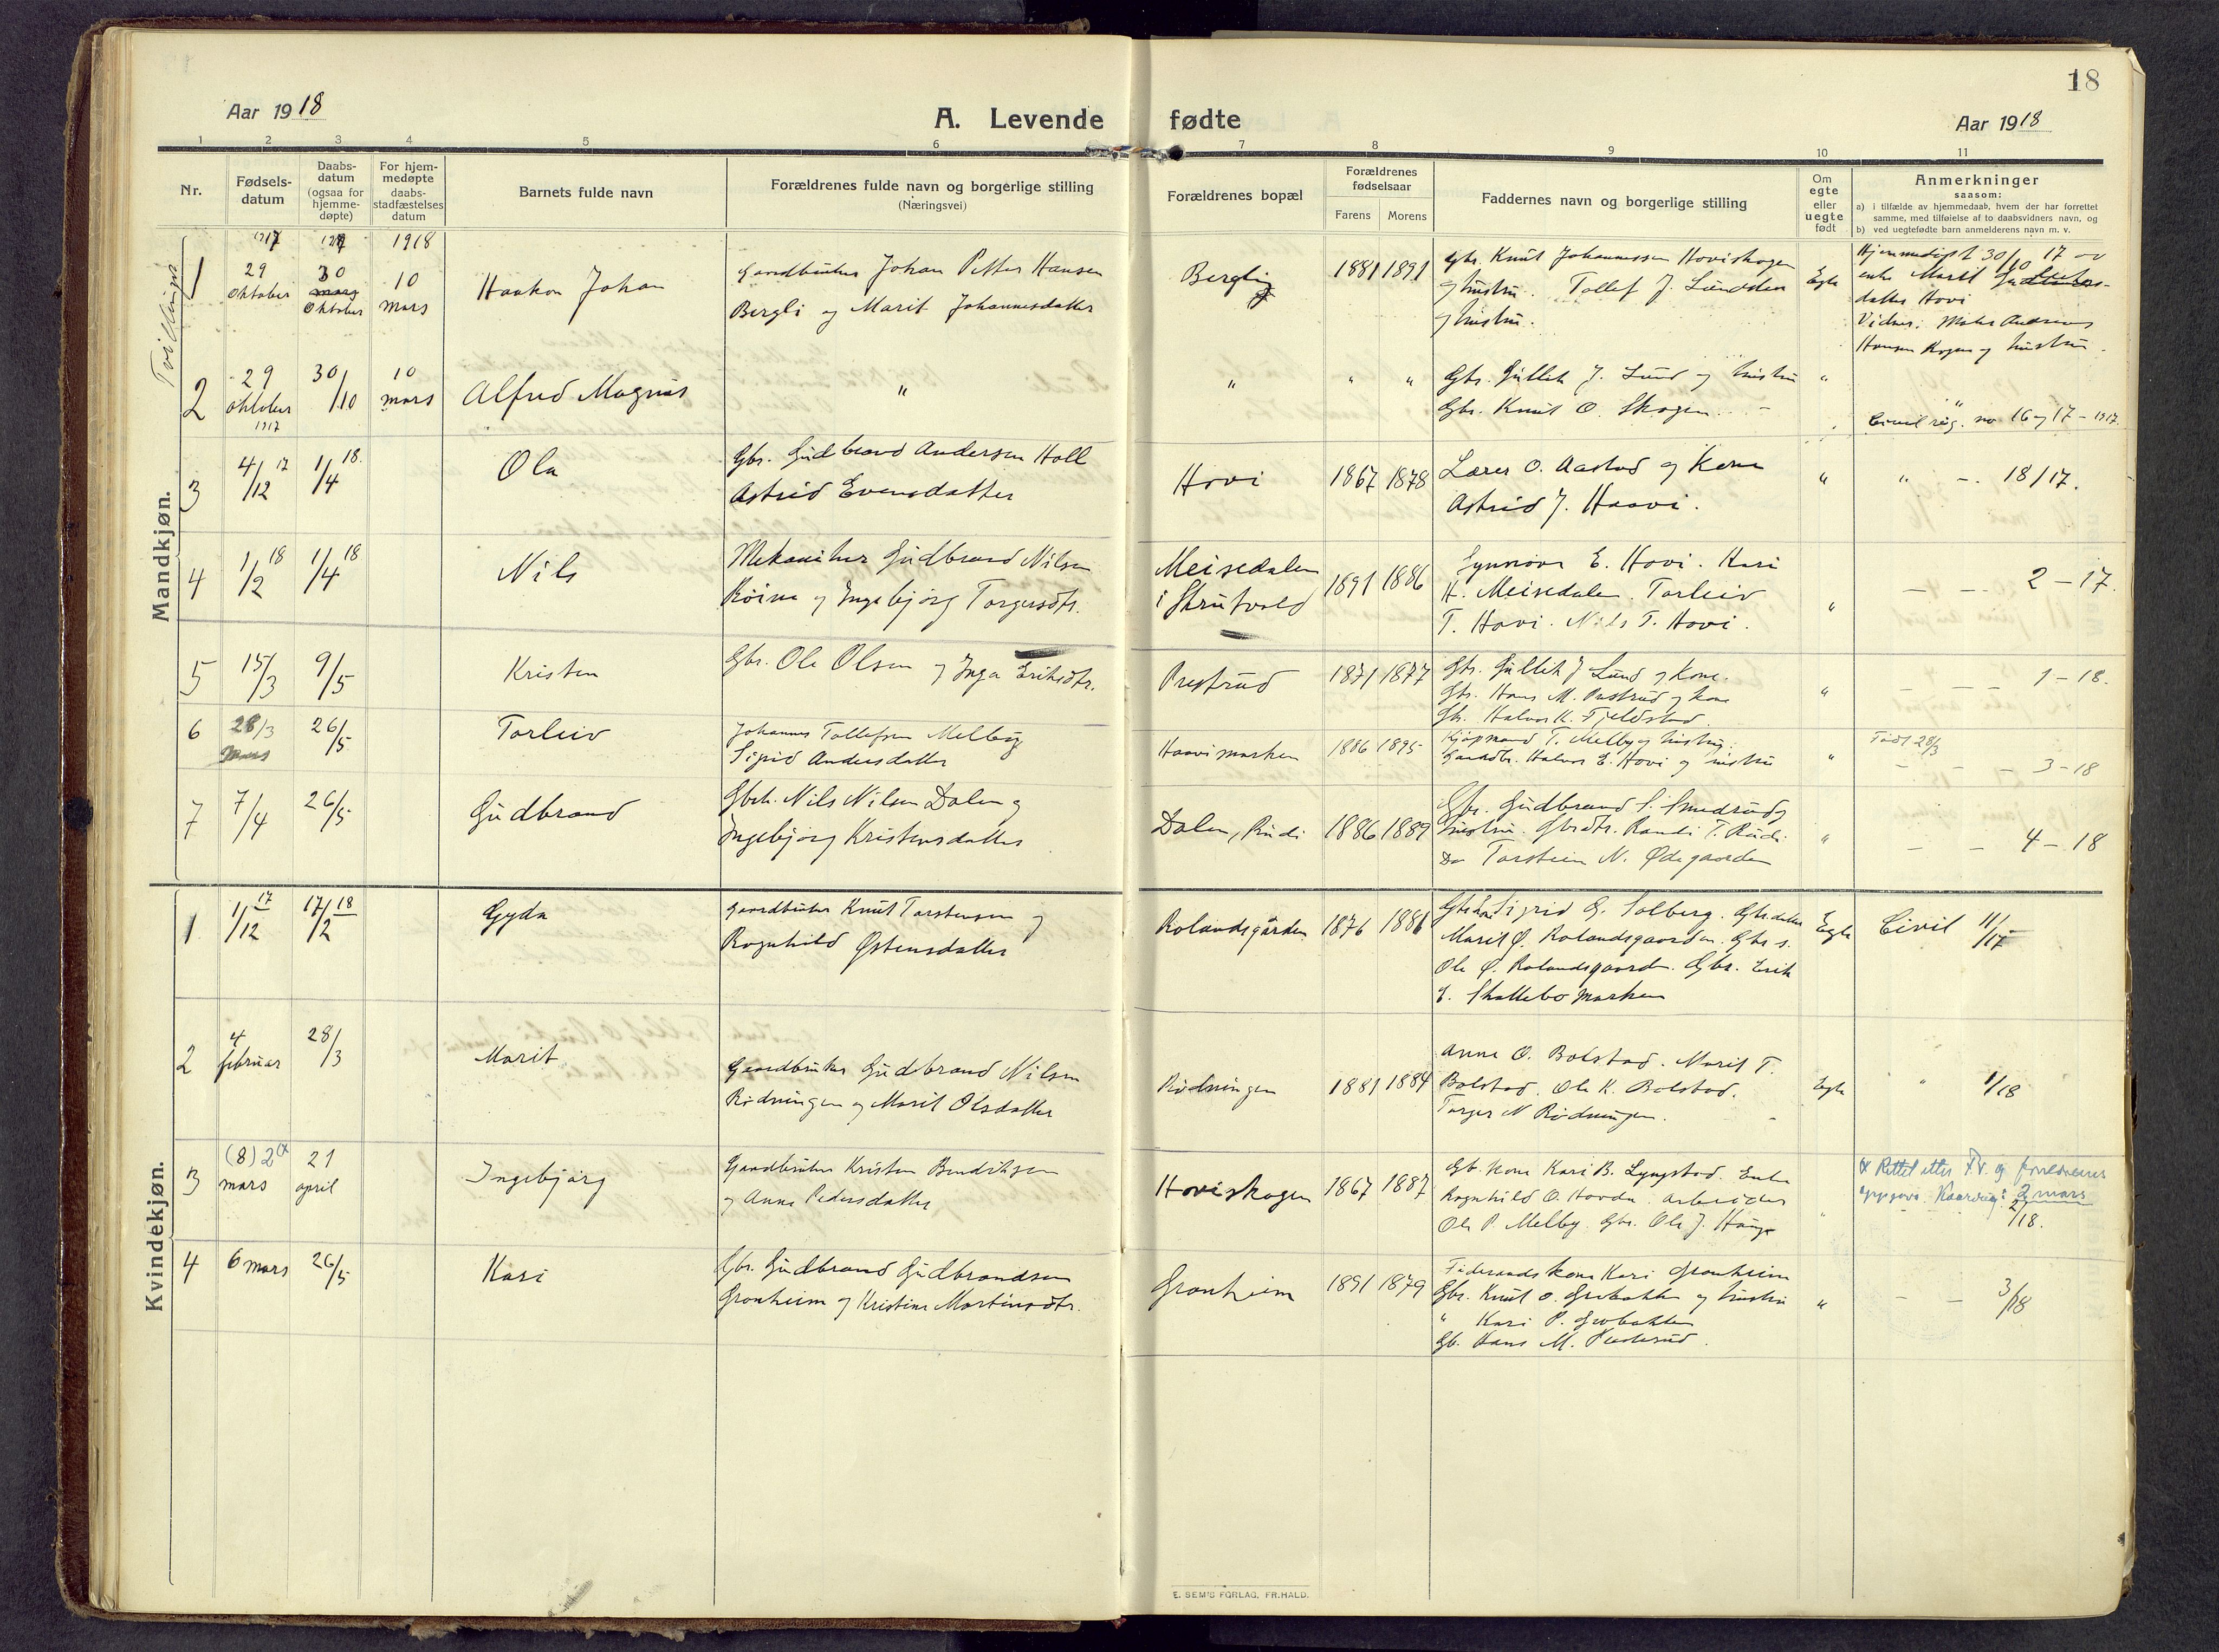 18
Aar 1918
A. Levende fødte
Aar 1918
1 2 3 4 5 6 7 8 9 10 11
Nr.
Fødsels-
datum
Daabs-
datum
(ogsaa for
hjemme-
døpte)
For hjem-
medøpte
daabs-
stadfæstelses
datum
Barnets fulde navn
Forældrenes fulde navn og borgerlige stilling
(Næringsvei)
Forældrenes bopæl
Forældrenes
fødselsaar
Farens Morens
Faddernes navn og borgerlige stilling
Om
egte
eller
uegte
født
Anmerkninger
saasom:
a) i tilfælde av hjemmedaab, hvem der har forrettet
samme, med tilføielse af to daabsvidners navn, og
b) ved uegtefødte barn anmelderens navn m. v.
Mandkjøn.
Tvillinger
1917 1917 1918
1
29
Oktober
30
mars
Oktober
10
mars
Haakon Johan
Gaardbruker Johan Petter Hansen
Bergli og Marit Johannesdatter
Bergli
1881 1891
Gbr. Knut Johannessen Hoviskogen
og hustru. Tollef J. Lundsten
og hustru.
Egte
Hjemmedøpt 30/10 17 av
enke Marit
datter Hovi
Vidner: Andreas
Hansen og hustru.
2
29
Oktober
1917
30/10
10
mars
Alfred Magnus
"
"
" "
Gbr. Gullik J. Lund og hustru
Gbr. Knut O. Skogen
"
"
Civil reg. no 16 og 17 – 1917.
3
4/12 17
1/4 18.
Ola
Gbr. Gudbrand Andersen Holl
Astrid Evensdatter
Hovi
1867 1878
Lærer O. Aastad og Kone
Astrid J. Haavi.
"
" – 18/17.
4
1/2 18
1/4 18
Nils
Mekaniker Gudbrand Nilsen
og Ingebjørg Torgersdtr.
Meisedalen
i Skrutvold
1891 1886
Synnøve E. Hovi. Kari
H. Meisedalen. Torleiv
T. Hovi. Nils T. Hovi.
"
– – 2 – 17.
5
15/3
9/5
Kristen
Gbr. Ole Olsen og Inga Eriksdtr.
Prestrud
1871 1877
Gbr. Gullik J Lund og Kone.
Gbr. Hans M. Prestrud og kone
Gbr. Halvor K. Fjeldstad.
"
– – – 1 – 18.
6
28/3
mars
26/5
Torleiv
Johannes Tollefsen Melby
Sigrid Andersdatter
Haavimarken
1886 1895
Kjøpmand T. Melby og hustru.
Gaardbr. Halvor E. Hovi og hustru
"
Født 28/3
– – – 3 – 18
7
7/4
26/5
Gudbrand
Gbr. Nils Nilsen Dalen og
Ingebjørg Kristensdatter
Dalen, Rudi
1886 1889
Gbr. Gudbrand S. Smedrud og
hustru. Gbrdtr. Randi T. Rudi.
Do Torstein N. Ødegaarden
"
– – 4 – 18
Kvindekjøn.
1
1/12 17
17/2 18
Gyda
Gaardbruker Knut Torstensen og
Ragnhild Østensdatter
Rolandsgården
1876 1886
Sigrid G. Solberg. Gbr.datter
Marit Ø. Rolandsgaarden. Gbr s.
Ole Ø. Rolandsgaarden. Gbr. Erik
E. Skattebomarken
Egte
Civil 11/17
2
4
februar
28/3
Marit
Gaardbruker Gudbrand Nilsen
Rødningen og Marit Olsdatter
Rødningen
1881 1884
Anne O. Bolstad. Marit T.
Bolstad. Ole K. Bolstad.
Torger N Rødningen.
Egte
" 1/18
3
(8) 2 x
mars
21
april
Ingebjørg
Gaardbruker Kristen Bendiksen
og Anne Pedersdatter
Hoviskogen
1867 1887
Gb. kone Kari B. Lyngstad. Enke
Ragnhild O. Hovda. Arbeider
Ole P. Melby. Gbr. Ole J. Hauge
"
x Rettet etter F.v. og foreldrenes
oppgave. 2 mars
2/18.
4
6 mars
26/5
Kari
Gbr. Gudbrand Gudbrandsen
Granheim og Kristine Martinsdtr.
Granheim
1891 1879
Føderaadskone Kari Granheim
Gbr. Knut O. Grøbakken og hustru
" Kari P. Grøbakken
Gb. Hans M.
"
– – 3/18
E. SEM'S FORLAG, FR.HALD.